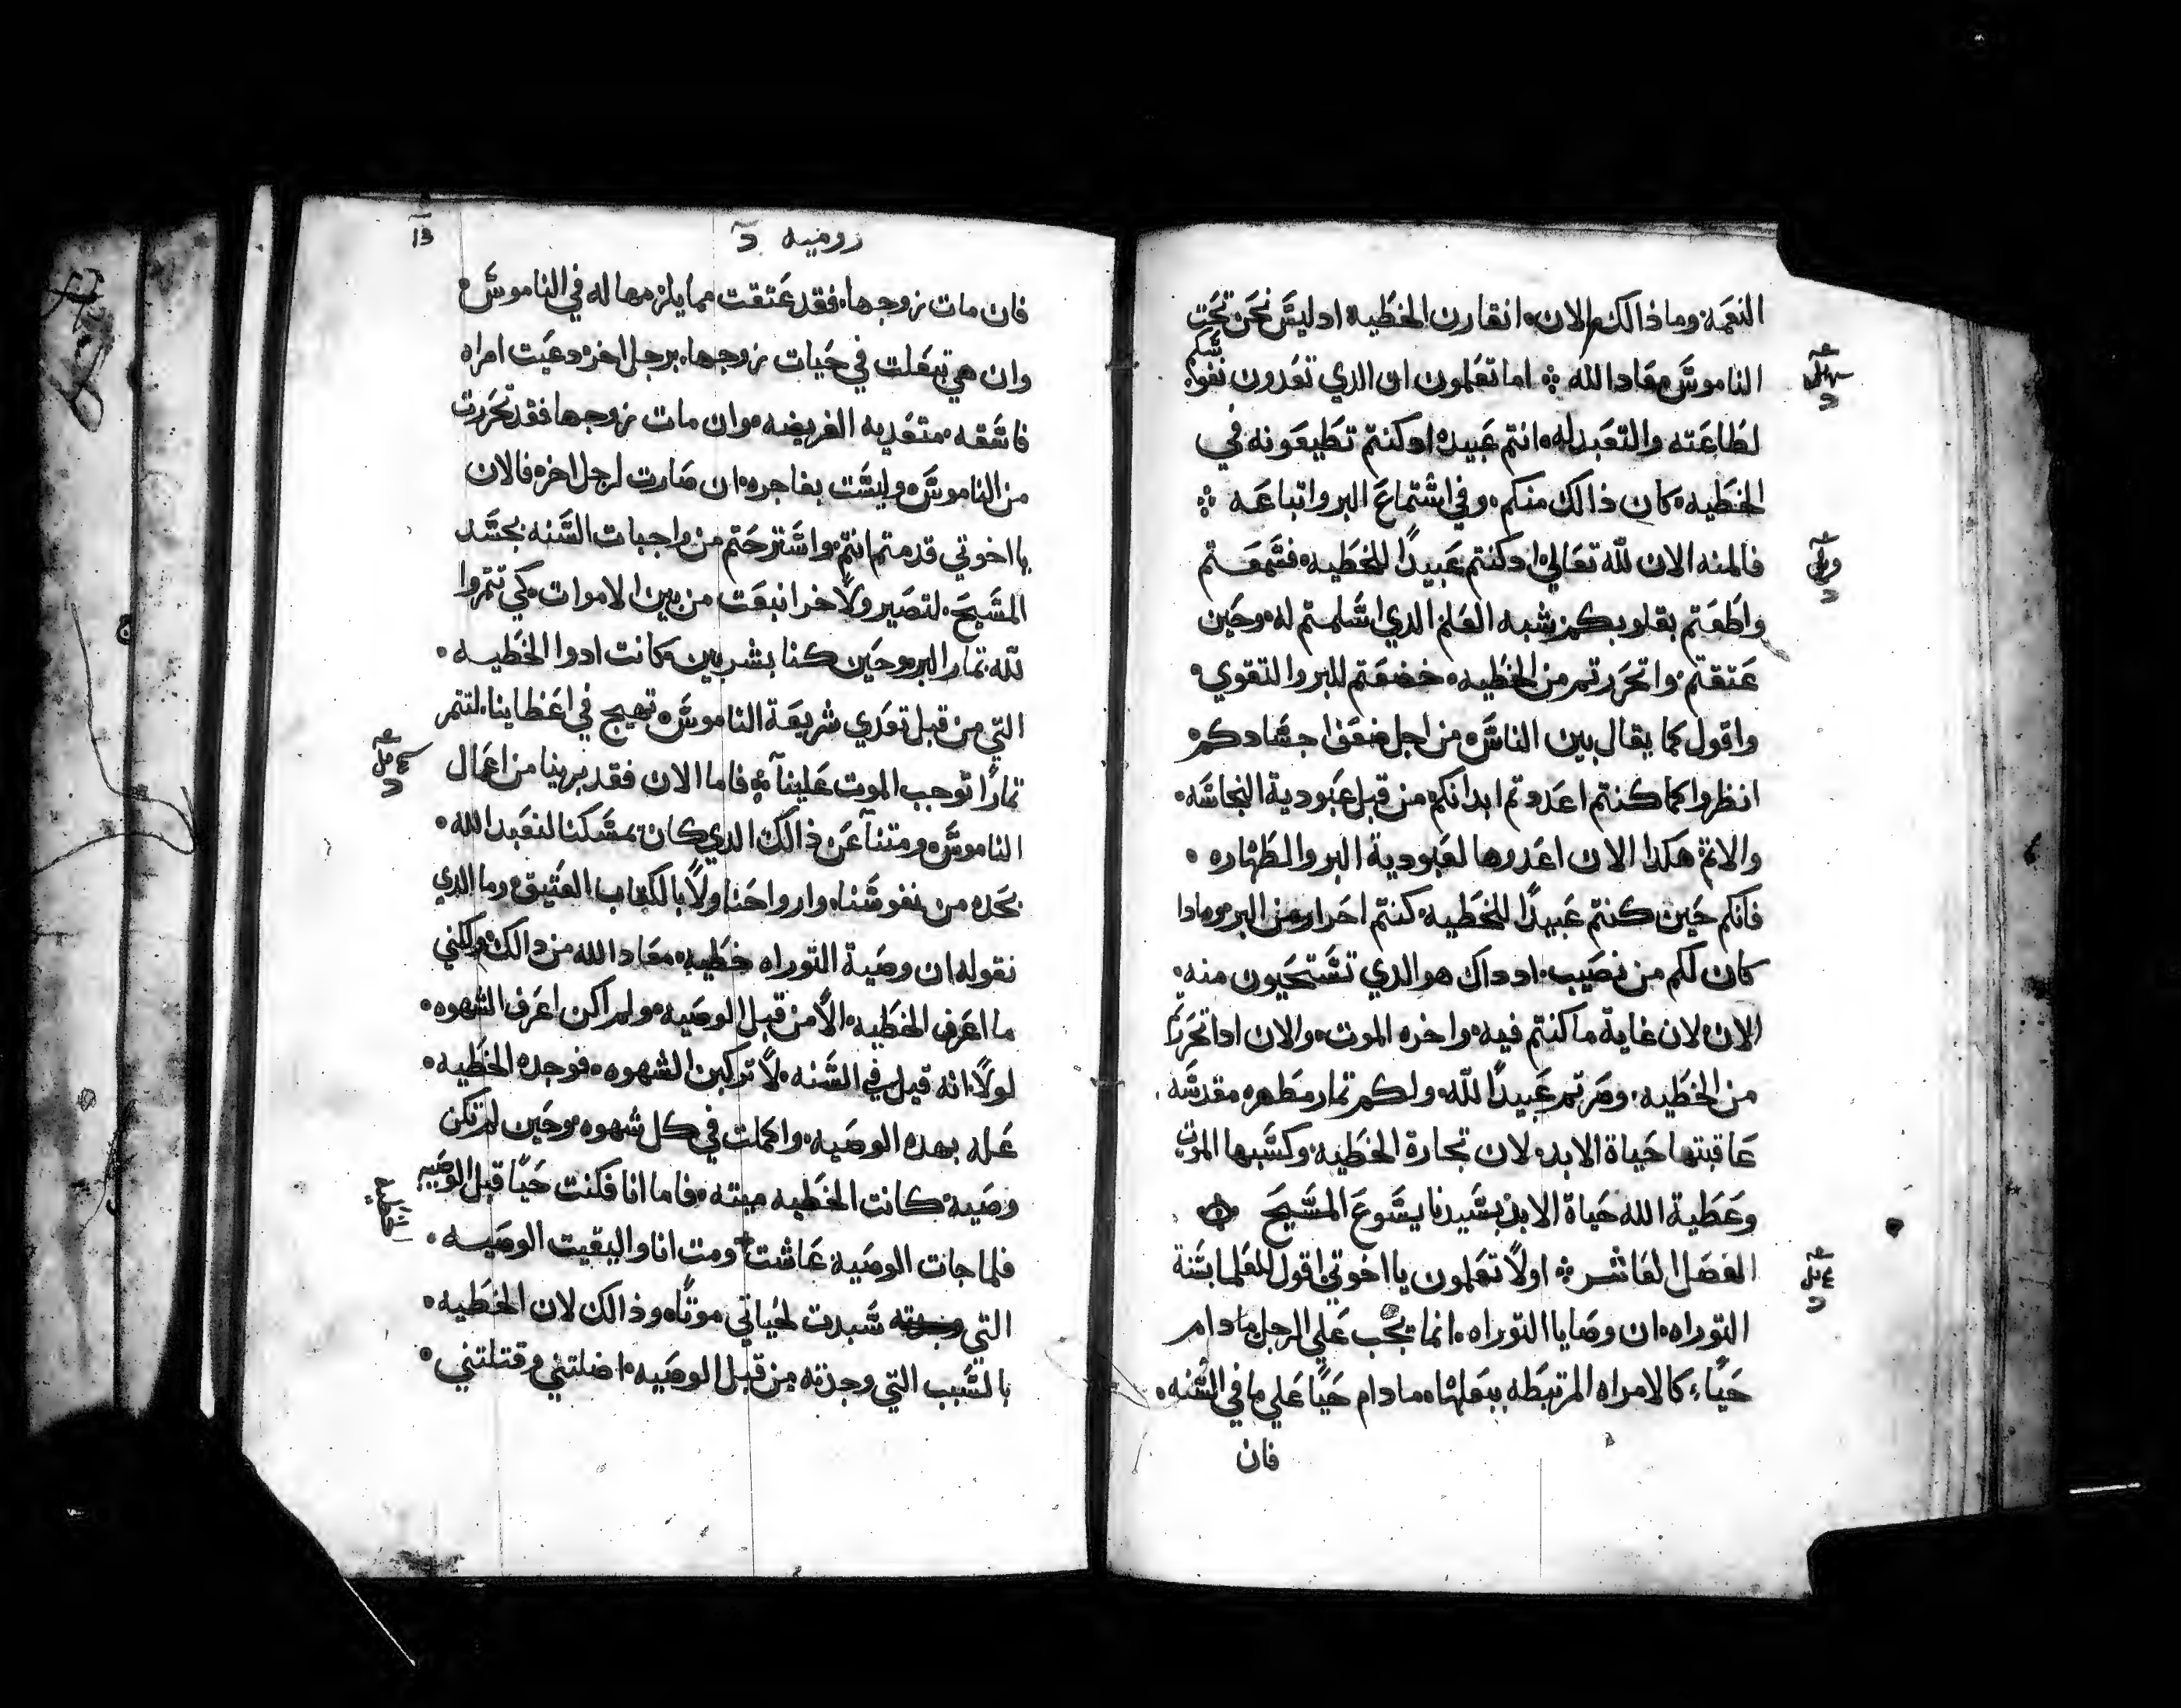 النعمه وماذالك الان انقارن الخطيه ادليس نحن تحت
الناموس معاد الله اما تعلمون ان الدي تعدون نفوسكم
لطاعته والتعبد له انتم عبيده ادكنتم تطيعونه في
الخطيه كان ذالك منكم وفي استماع البر واتباعه
فالمنه الان لله تعالي ادكنتم عبيدًا للخطيه فسمعتم
واطعتم بقلوبكم شبه العلم الدي اسلمتم له وحين
عتقتم واتحررتم من الخطيه خضعتم للبر والتقوي
واقول كما يقال بين الناس من اجل ضعف اجسادكم
انظروا كما كنتم اعدوتم ابدانكم من قبل عبودية النجاسه
والاتم هكدا الان اعدوها لعبودية البر والطهاره
فانكم حين كنتم عبيدًا للخطيه كنتم احرار من البر ومادا
كان لكم من نصيب ادداك هو الدي تستحيون منه
الان لان غاية ماكنتم فيه واخره الموت والان اداتحررتم
من الخطيه وصرتم عبيدًا لله ولكم تمار مطهره مقدسه
عاقبتها حياة الابد لان تجارة الخطيه وكسبها الموت
وعطية الله حياة الابد بسيدنا يسوع المسيح
الفصل العاشر اولًا تعلمون يااخوتي اقول للعلما بسنة
التوراه ان وصايا التوراه انما تجب علي الرجل مادام
حيًا كالامراه المرتبطه ببعلها مادام حيًا علي ما في السنه
فان
روميه
13
فان مات زوجها فقد عتقت مما يلزمها له في الناموس
وان هي تبعلت في حيات زوجها برجل اخر دعيت امراه
فاسقه متعديه الفريضه وان مات زوجها فقد تحررت
من الناموس وليست بفاجره ان صارت لرجل اخر فالان
يااخوتي قدمتم انتم واسترحتم من واجبات السنه بجسد
المسيح لتصيرو لاخر انبعت من بين الاموات كي تتمروا
لله تمار البر وحين كنا بشريين كانت ادوا الخطيه
التي من قبل تعدي شريعة الناموس تهيج في اعظاينا لنتمر
تمارًا توجب الموت علينا فاما الان فقد برينا من اعمال
الناموس ومتنا عن ذالك الدي كان يمسكنا لنعبد الله
بحده من نفوسنا وارواحنا ولا بالكتاب العتيق وما الدي
نقوله ان وصية التوراه خطيه معاد الله من دالك ولكني
ما اعرف الخطيه الًا من قبل الوصيه ولم اكن اعرف الشهوه
لولًا انه قيل في السنه لًا تركبن الشهوه فوجده الخطيه
عله بهده الوصيه واكملت في كل شهوه وحين لم تكن
وصيه كانت الخطيه ميته فاما انا فكنت حيًا قبل الوصيه
فلما جات الوصية عاشت ومت انا والبقيت الوصيه
التي وجدته سببت لحياتي موتًا وذالك لان الخطيه
بالسبب التي وجدته من قبل الوصيه اضلتني وقتلتني